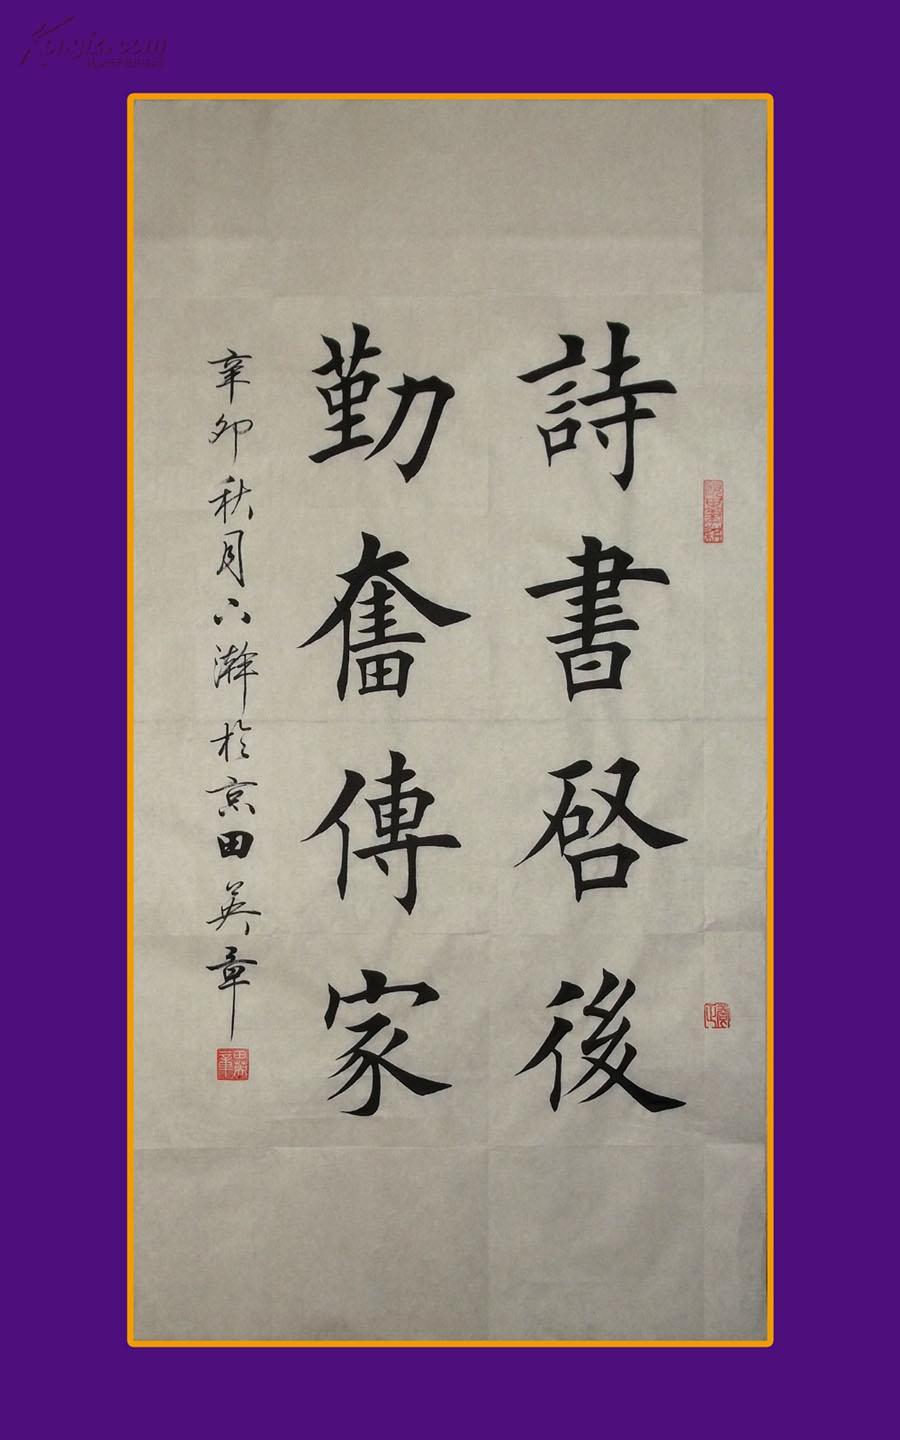 詩書啓後
勤奮傳家
辛卯秋月六瀚於京田英章
田英章
Kongfz.com